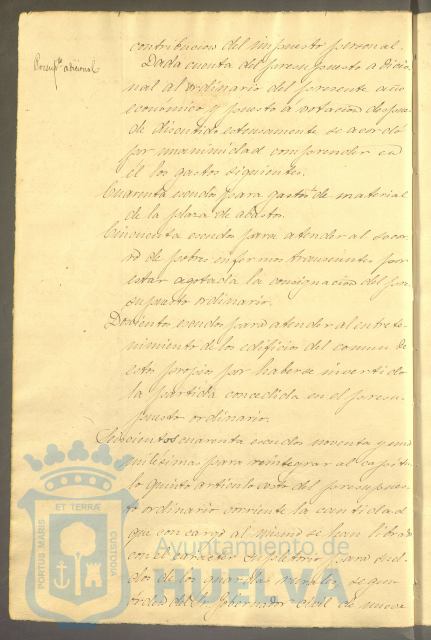 contribucion del impuesto personal.
Presupto adicional
Dada cuenta del presupuesto adicio
nal al ordinario del presente año
económico y puesto a votacion despues
de discutido estensamente se acordó
por unanimidad comprender en
él los gastos siguientes.
Cuarenta escudos para gastos de material
de la plaza de abastos.
Cincuenta escudos para atender al socor
ro de pobres enfermos transeuntes por
estar agotada la consignacion del pre
supuesto ordinario.
Doscientos escudos para atender al entrete
nimiento de los edificios del comun de
estos propios por haberse invertido
la partida concedida en el presu
puesto ordinario.
Seiscientos cuarenta escudos noventa y una
milesimas para reintegrar al capitu
lo quinto articulo del presupues
to ordinario corriente la cantidad
que con cargo al mismo se han librado
con el caracter supletorio para suel
dos de los guardas rurales segun
orden del Gobernador Civil de nueve
ET TERRÆ
PORTUS MARIS
CUSTODIA
Ayuntamiento de
HUELVA